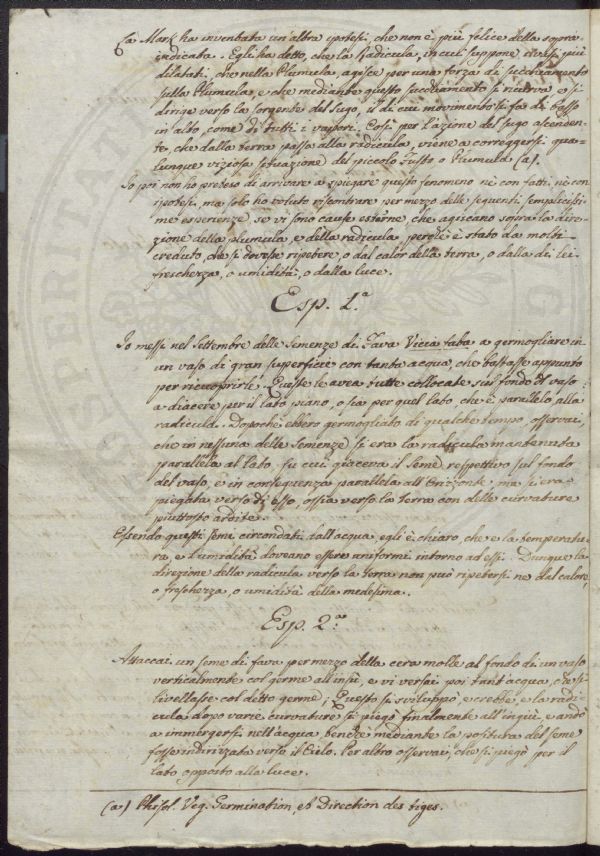 La Mark ha inventata un'altra ipotesi, che non è più felice della sopra
indicata. Egli ha detto, che la Radicula, in cui suppone i vasi più
dilatati, che nella Plumula, agisca per una forza di succhiamento
sulla Plumula, e che mediante questo succhiamento si incurva, e si
dirige verso la sorgente del sugo, il di cui movimento si fa di basso
in alto, come di tutti i vapori. Così per l'azione del sugo ascenden-
te, che dalla terra passa alla radicula, viene a correggersi qua-
lunque viziosa situazione del piccolo fusto o Plumula (a).
Io poi non ho preteso di arrivare a spiegare questo fenomeno nè con fatti, nè con
ipotesi, ma solo ho voluto riscontrare per mezzo delle seguenti semplicissi-
me esperienze, se vi sono cause esterne, che agiscano sopra la dire-
zione della plumula, e della radicula perchè è stato da molti
creduto, che si dovesse ripetere, o dal calor della terra, o dalla di lei
freschezza, o umidità, o dalla luce.
Esp. 1.a
Io messi nel Settembre delle Semenze di Fava Vicia faba a germogliare in
un vaso di gran superficie con tanta acqua, che bastasse appunto
per ricuoprirle. Queste le avea tutte collocate sul fondo del vaso
a diacere per il lato piano, o sia per quel lato che è parallelo alla
radicula. Dopochè ebbero germogliato di qualche tempo, osservai,
che in nessuna delle Semenze si era la radicula mantenuta
parallela al lato su cui giaceva il Seme respettivo sul fondo
del vaso, e in conseguenza parallela all'Orizzonte, ma si era
piegata verso di esso, ossia verso la Terra con delle curvature
piuttosto ardite.
Essendo questi Semi circondati dall'acqua, egli è chiaro, che e la temperatu-
ra, e l'umidità doveano essere uniformi intorno ad essi. Dunque la
direzione della radicula verso la terra non può ripetersi ne dal calore,
o freschezza, o umidità della medesima.
Esp. 2.a
Attaccai un seme di fava per mezzo della cera molle al fondo di un vaso
verticalmente col germe all'insù, e vi versai poi tant'acqua, che si
livellasse col detto germe; Questo si sviluppò, e crebbe, e la radi-
cula dopo varie curvature si piegò finalmente all'ingiù, e andò
a immergersi nell'acqua, benchè mediante la positura del seme
fosse indirizzata verso il Cielo. Per altro osservai, che si piegò per il
lato opposto alla luce.
(a) Phisol. Veg. Germination, et Direction des tiges.